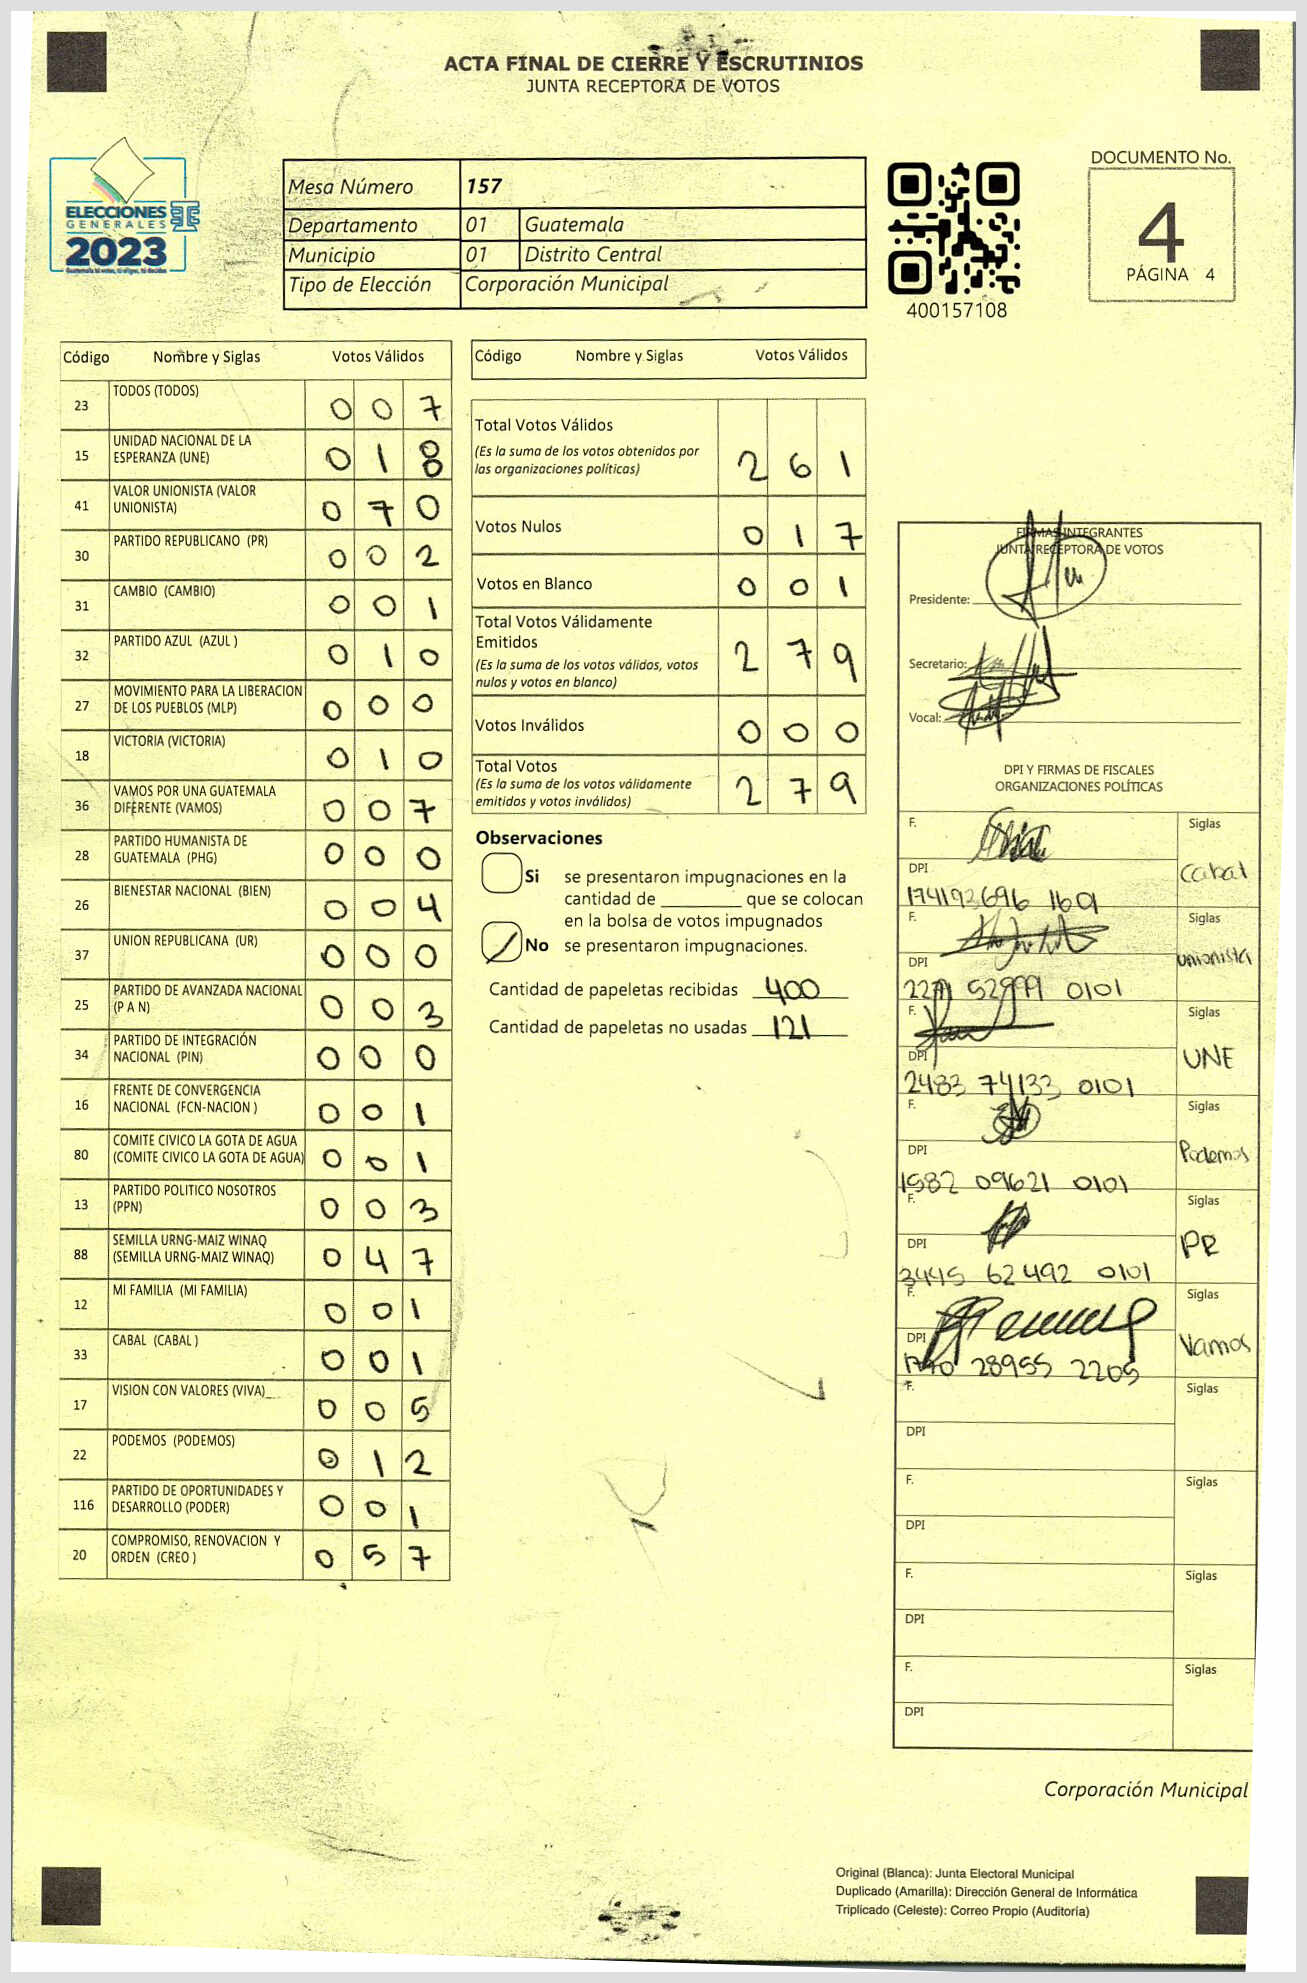 ACTA FINAL DE CIERRE Y ESCRUTINIOS
JUNTA RECEPTORA DE VOTOS
ELECCIONES
GENERALES
2023
Guatemala tú votas, tú eliges, tú decides
Mesa Número 157
Departamento 01 Guatemala
Municipio 01 Distrito Central
Tipo de Elección Corporación Municipal
400157108
DOCUMENTO No.
4
PÁGINA 4
Código Nombre y Siglas Votos Válidos
23 TODOS (TODOS) 0 0 7
15 UNIDAD NACIONAL DE LA
ESPERANZA (UNE) 0 1 8
41 VALOR UNIONISTA (VALOR
UNIONISTA) 0 7 0
30 PARTIDO REPUBLICANO (PR) 0 0 2
31 CAMBIO (CAMBIO) 0 0 1
32 PARTIDO AZUL (AZUL ) 0 1 0
27 MOVIMIENTO PARA LA LIBERACION
DE LOS PUEBLOS (MLP) 0 0 0
18 VICTORIA (VICTORIA) 0 1 0
36 VAMOS POR UNA GUATEMALA
DIFERENTE (VAMOS) 0 0 7
28 PARTIDO HUMANISTA DE
GUATEMALA (PHG) 0 0 0
26 BIENESTAR NACIONAL (BIEN) 0 0 4
37 UNION REPUBLICANA (UR) 0 0 0
25 PARTIDO DE AVANZADA NACIONAL
(P A N) 0 0 3
34 PARTIDO DE INTEGRACIÓN
NACIONAL (PIN) 0 0 0
16 FRENTE DE CONVERGENCIA
NACIONAL (FCN-NACION ) 0 0 1
80 COMITE CIVICO LA GOTA DE AGUA
(COMITE CIVICO LA GOTA DE AGUA) 0 0 1
13 PARTIDO POLITICO NOSOTROS
(PPN) 0 0 3
88 SEMILLA URNG-MAIZ WINAQ
(SEMILLA URNG-MAIZ WINAQ) 0 4 7
12 MI FAMILIA (MI FAMILIA) 0 0 1
33 CABAL (CABAL ) 0 0 1
17 VISION CON VALORES (VIVA) 0 0 5
22 PODEMOS (PODEMOS) 0 1 2
116 PARTIDO DE OPORTUNIDADES Y
DESARROLLO (PODER) 0 0 1
20 COMPROMISO, RENOVACION Y
ORDEN (CREO ) 0 5 7
Código Nombre y Siglas Votos Válidos
Total Votos Válidos
(Es la suma de los votos obtenidos por
las organizaciones políticas) 2 6 1
Votos Nulos 0 1 7
Votos en Blanco 0 0 1
Total Votos Válidamente
Emitidos
(Es la suma de los votos válidos, votos
nulos y votos en blanco) 2 7 9
Votos Inválidos 0 0 0
Total Votos
(Es la suma de los votos válidamente
emitidos y votos inválidos) 2 7 9
Observaciones
Si se presentaron impugnaciones en la
cantidad de ________ que se colocan
en la bolsa de votos impugnados
No se presentaron impugnaciones.
Cantidad de papeletas recibidas 400
Cantidad de papeletas no usadas 121
FIRMAS INTEGRANTES
JUNTA RECEPTORA DE VOTOS
Presidente:
Secretario:
Vocal:
DPI Y FIRMAS DE FISCALES
ORGANIZACIONES POLÍTICAS
F. Siglas
DPI Cabal
F. Siglas
DPI unionista
F. Siglas
DPI UNE
2483 74133 0101
F. Siglas
DPI Podemos
1582 09621 0101
F. Siglas
DPI PR
3445 62492 0101
F. Siglas
DPI Vamos
28955 2205
F. Siglas
DPI
F. Siglas
DPI
F. Siglas
DPI
F. Siglas
DPI
Corporación Municipal
Original (Blanca): Junta Electoral Municipal
Duplicado (Amarilla): Dirección General de Informática
Triplicado (Celeste): Correo Propio (Auditoría)